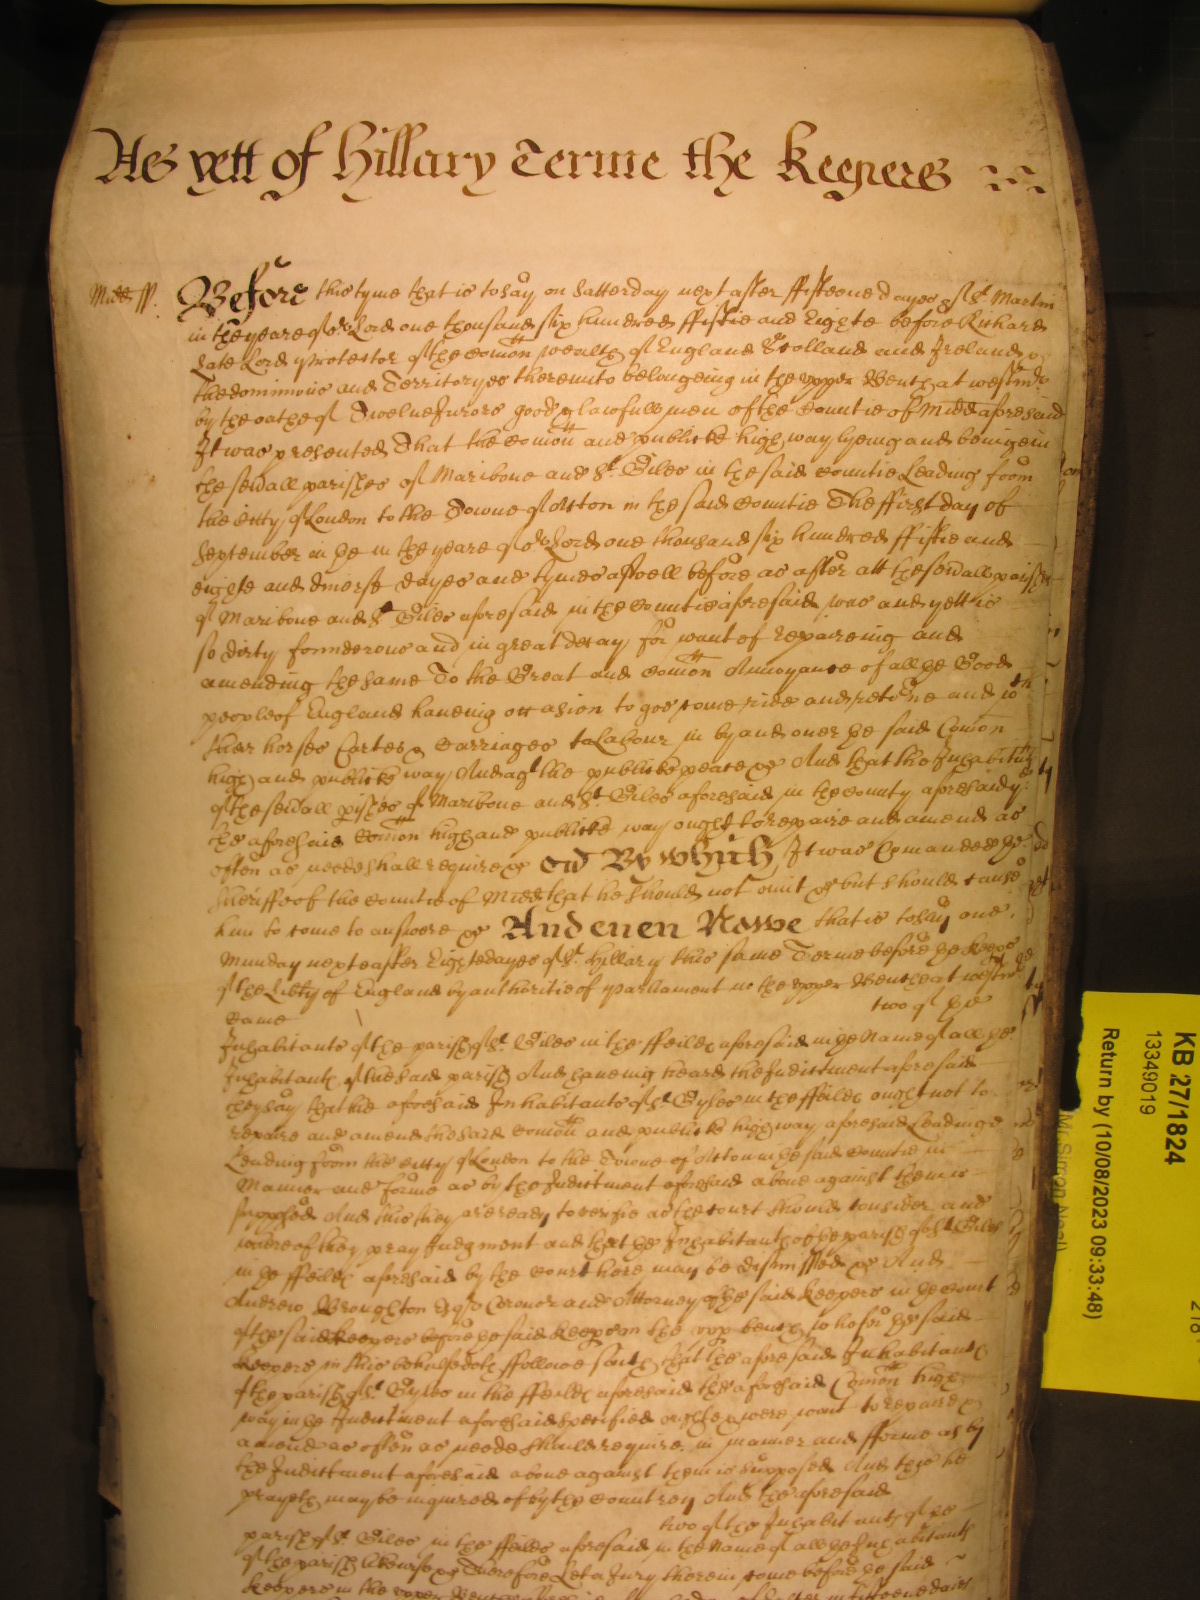 As yett of Hillary Terme the Keepers
Midd ss. Before this tyme that is to say on Satterday next after ffifteene dayes of St. Martin
in the yeare of or Lord one thousand six hundred ffiftie and Eighte before Richard
Late Lord Protector of the Comon wealth of England Scotland and Ireland &
the dominions and Territoryes thereunto belongeing in the upper Bench at Westmr
by the oathe of Twelve Jurors good & lawfull men of the Countie of Midd aforesaid
It was presented That the Comon and publicke high way lyeing and being in
the sevall parishes of Maribone and St. Giles in the said Countie Leading from
the Citty of London to the Towne of Acton in the said Countie The ffirst day of
September in ye in the yeare of or Lord one thousand six hundred ffiftie and
eighte and diverse dayes and tymes aswell before as after att the sevall parishes
of Maribone and St Giles aforesaid in the Countie aforesaid was and yett is
so dirty founderous and in great decay for want of repaireing and
amending the same To the Great and Comon Annoyance of all ye Good
people of England haveing occasion to goe come ride and retorne and wth
their horses Cartes & Carriages to Labour in by and over ye said Comon
high and publicke way And agt the publicke peace &c And that the Inhabitants
of the sevall pishes of Maribone and St. Giles aforesaid in the County aforesaid
the aforesaid Comon high and publicke way ought to repaire and amend as
often as neede shall require &c By which It was Comanded ye
Sheriffe of the Countie of Midd that he should not omit &c but should cause
him to come to answere &c And even Nowe that is to say one
Munday next after Eighte dayes of St. Hillary this same Terme before ye Keeps
of the Libty of England by authoritie of parliament in the upper Bench at Westmr
Came two of ye
Inhabitants of the parish of St. Giles in the ffeilds aforesaid in ye Name of all ye
Inhabitants of the said parish And haveing heard the Indictment aforesaid
they say that the aforesaid Inhabitants of St. Gyles in the ffeilds ought not to
repaire and amend the said Comon and publicke highway aforesaid Leadinge
Leading from the Citty of London to the Towne of Acton in ye said Countie in
Manner and forme as by the Indictment aforesaid above against them is
supposed And this they are ready to verifie as the Court should consider and
whereof they pray Judgment and that ye Inhabitants of the parish of St. Giles
in ye ffeilds aforesaid by the Court here may be dismissed &c And
Andrew Broughton Esqr Coronor and Attorney of ye said Keepers in ye Court
of the said Keepers before ye said Keeps in the upp bench who for ye said
Keepers in this behalfe doth ffollowe saith that the aforesaid Inhabitants
of the parish of St. Gyles in the ffeilds aforesaid the aforesaid Comon high
way in ye Indictment aforesaid specified ought & were wont to repaire &
amend as often as neede should require in manner and fforme as by
the Indictment aforesaid above against them is supposed And this he
prayeth may be inquired of by the Countrey And the aforesaid
two of the Inhabitants of ye
parish of St. Giles in the ffeilds aforesaid in the Name of all ye Inhabitants
of the parish likewise &c Therefore Let a Jury therein come before ye said
Keepers in the upper Bench
KB 27/1824
13349019
Return by (10/08/2023 09:33:48)